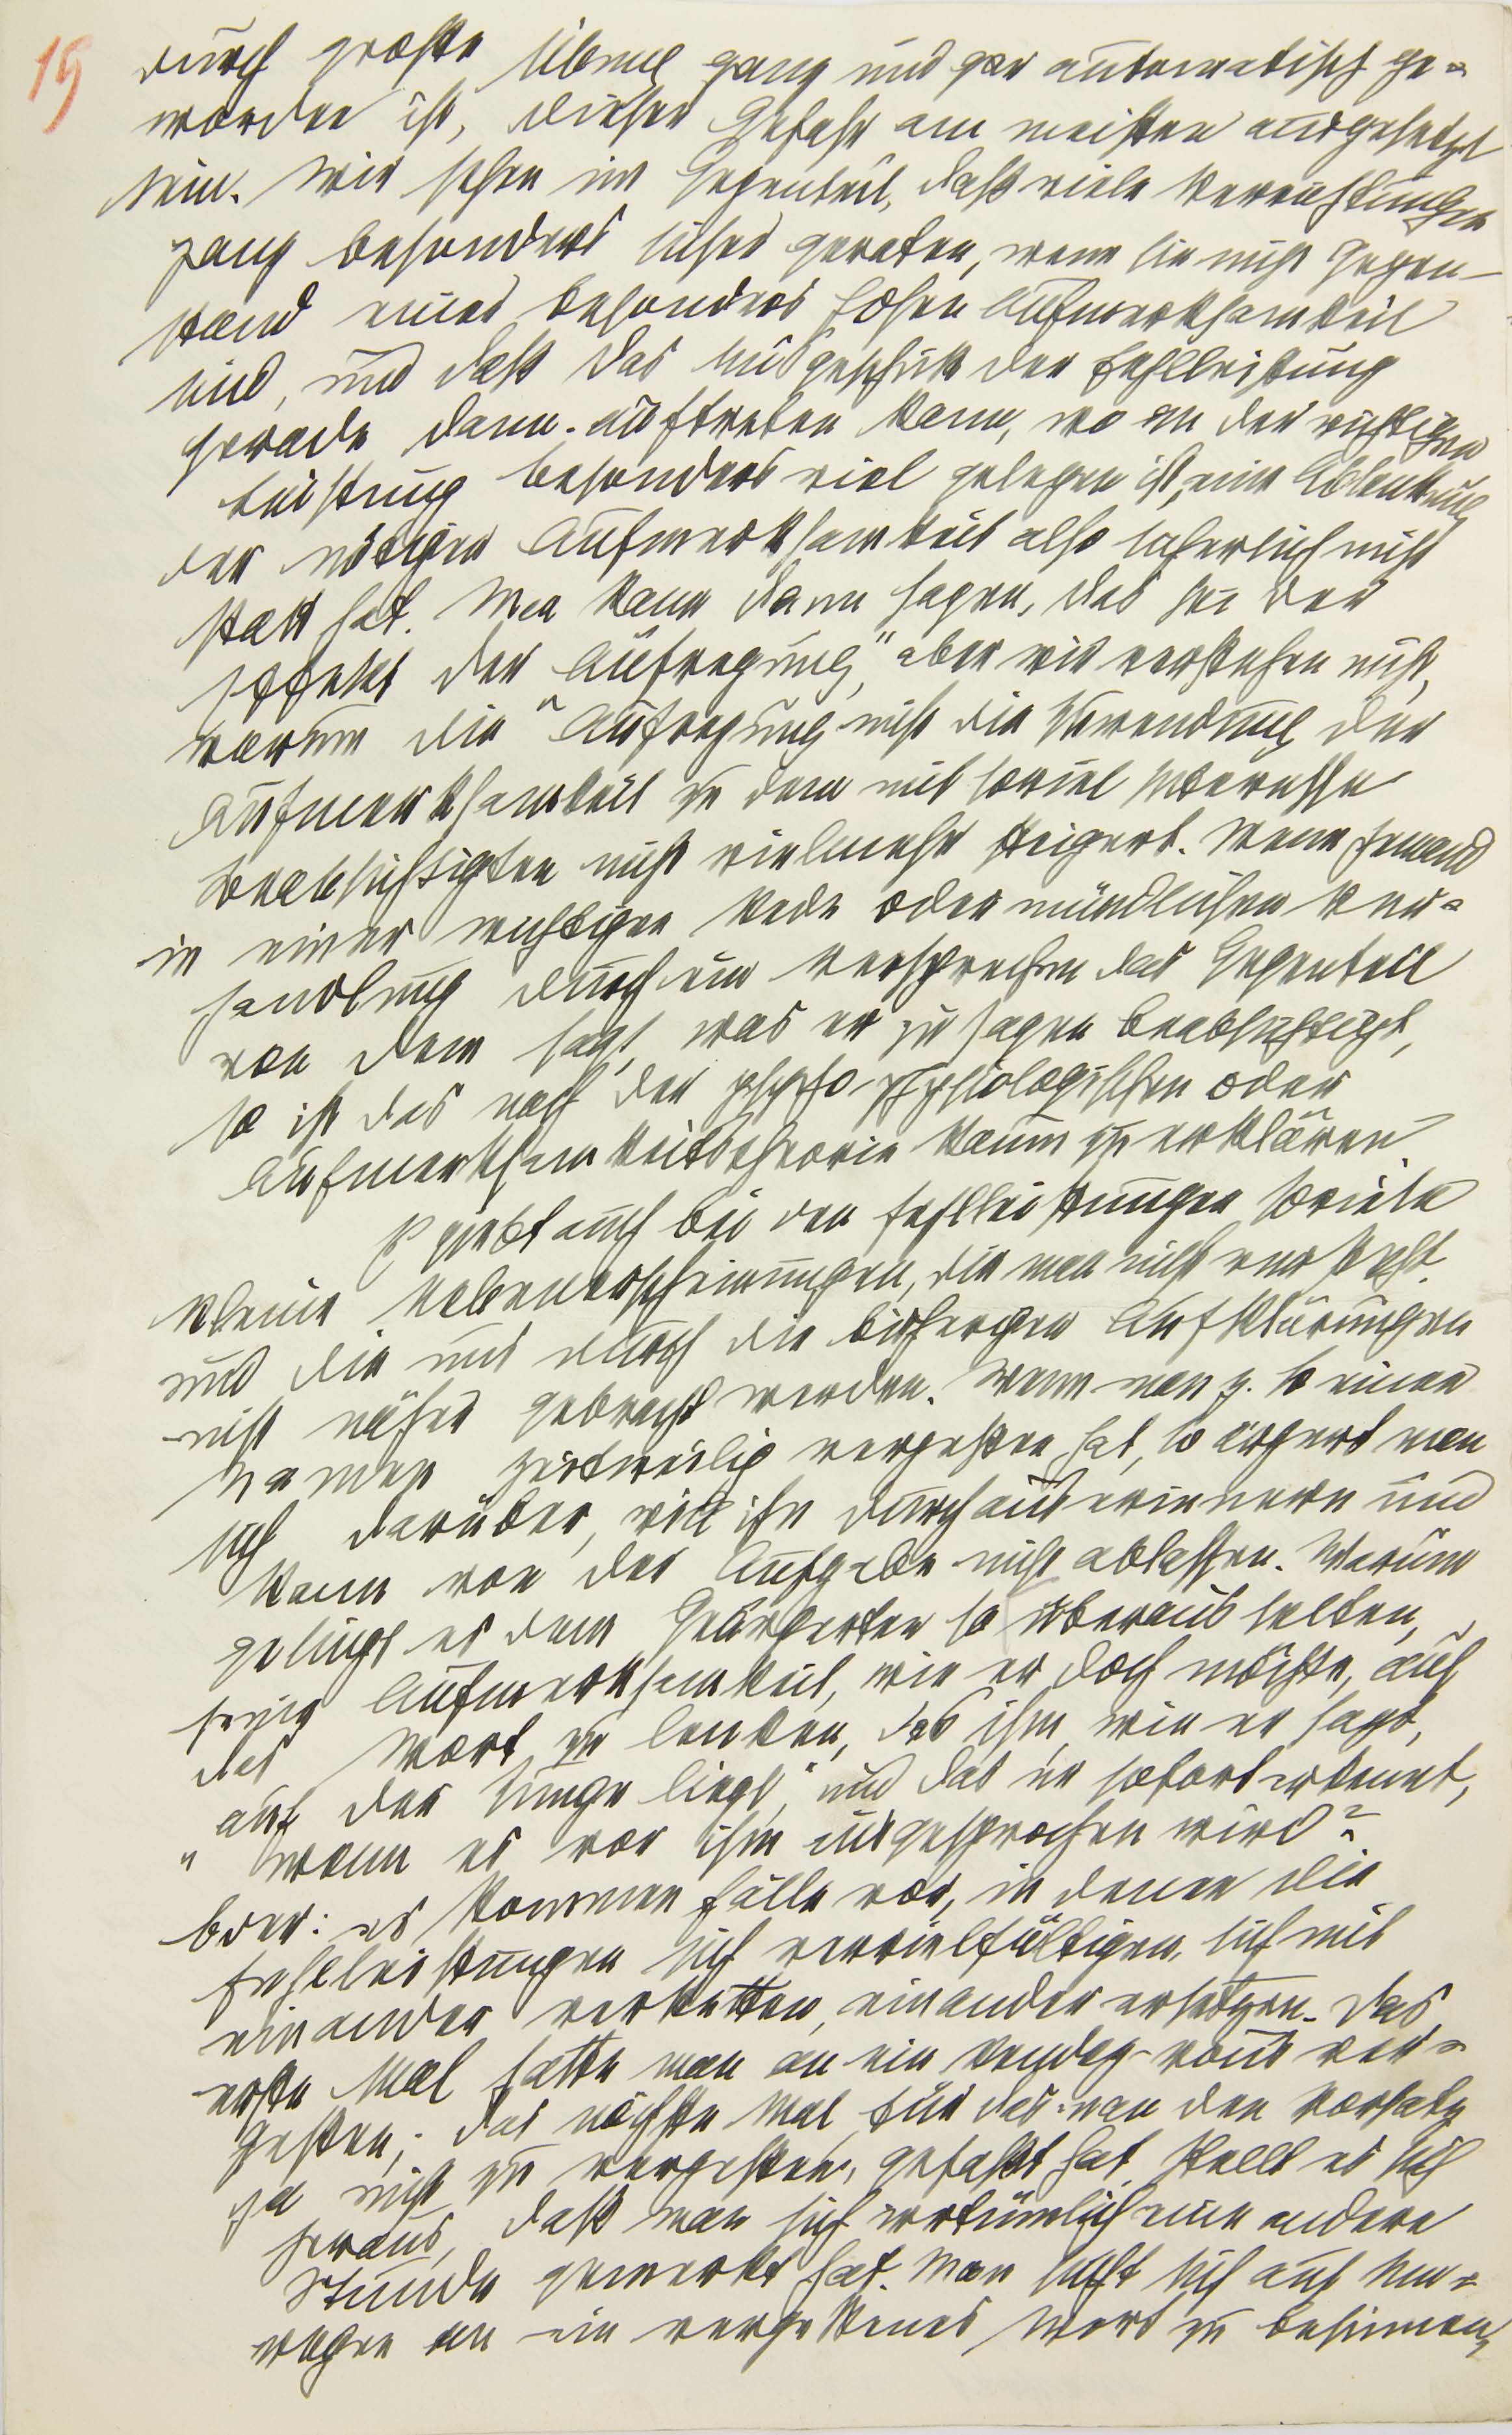 19
durch große Übung ganz und gar automatisch ge-
worden ist, dieser Gefahr am meisten ausgesetzt
sein. Wir sehen im Gegenteil, daß viele Verrichtungen
ganz besonders sicher geraten, wenn sie nicht Gegen-
stand einer besonders hohen Aufmerksamkeit
sind, und daß das Mißgeschick der Fehlleistung
gerade dann auftreten kann, wo an der richtigen
Leistung besonders viel gelegen ist, eine Ablenkung
der nötigen Aufmerksamkeit also sicherlich nicht
statt hat. Man kann dann sagen, das sei der
Effekt der „Aufregung", aber wir verstehen nicht,
warum die „Aufregung nicht die Zuwendung der
Aufmerksamkeit zu dem mit soviel Interesse
Beabsichtigten nicht vielmehr steigert. Wenn jemand
in einer wichtigen Rede oder mündlichen Ver-
handlung durch ein Versprechen das Gegenteil
von dem sagt, was er zu sagen beabsichtigt,
so ist das nach der psycho-physiologischen oder
Aufmerksamkeitstheorie kaum zu erklären.
Es giebt auch bei den Fehlleistungen soviele
kleine Nebenerscheinungen, die man nicht versteht
und die uns durch die bisherigen Aufklärungen
nicht näher gebracht werden. Wenn man z. B einen
Namen zeitweilig vergessen hat, so ärgert man
sich darüber, will ihn durchaus erinnern und
kann von der Aufgabe nicht ablassen. Warum
gelingt es dem Geärgerten so überaus selten,
seine Aufmerksamkeit, wie er doch möchte, auf
das Wort zu lenken, das ihm, wie er sagt,
„auf der Zunge liegt", und das er sofort erkennt,
wenn es vor ihm ausgesprochen wird?
Oder: es kommen Fälle vor, in denen die
Fehlleistungen sich vervielfältigen, sich mit
einander verketten, einander ersetzen. Das
erste Mal hatte man an ein Rendez-vous ver-
gessen; das nächste Mal, für das man den Vorsatz
ja nicht zu vergessen, gefaßt hat, stellt es sich
heraus, daß man sich irrtümlich eine andere
Stunde gemerkt hat. Man sucht sich auf Um-
wegen an ein vergessenes Wort zu besinnen,